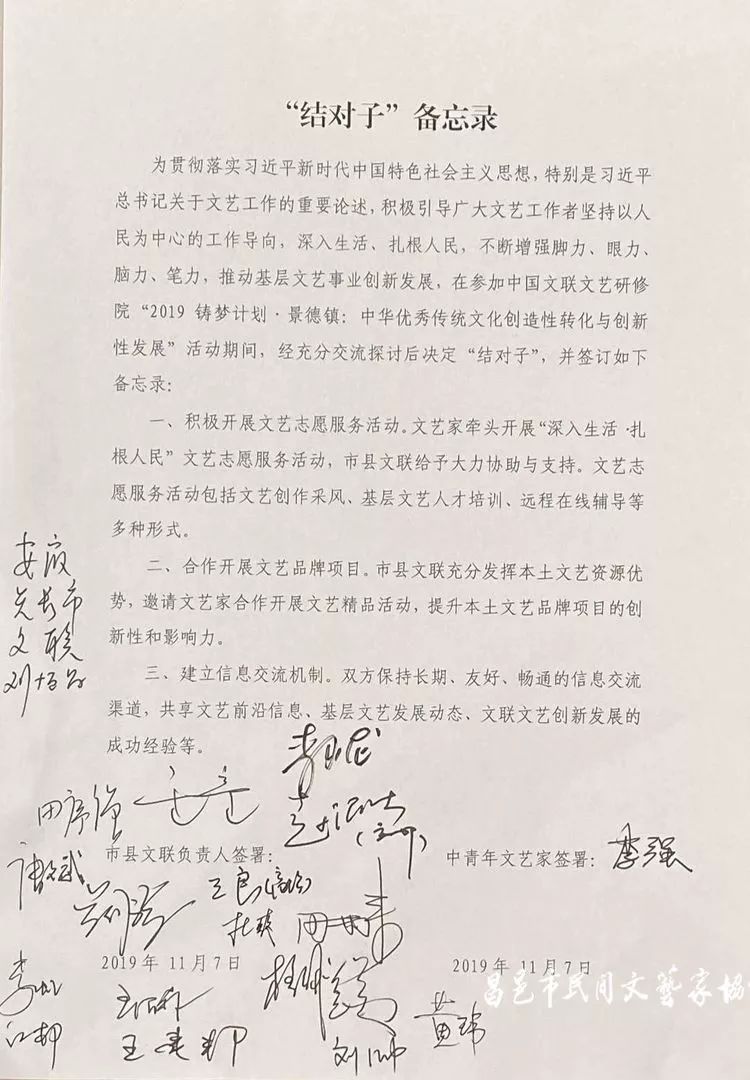 “结对子”备忘录
为贯彻落实习近平新时代中国特色社会主义思想，特别是习近平
总书记关于文艺工作的重要论述，积极引导广大文艺工作者坚持以人
民为中心的工作导向，深入生活、扎根人民，不断增强脚力、眼力、
脑力、笔力，推动基层文艺事业创新发展，在参加中国文联文艺研修
院“2019 铸梦计划·景德镇：中华优秀传统文化创造性转化与创新
性发展”活动期间，经充分交流探讨后决定“结对子”，并签订如下
备忘录：
一、积极开展文艺志愿服务活动。文艺家牵头开展“深入生活·扎
根人民”文艺志愿服务活动，市县文联给予大力协助与支持。文艺志
愿服务活动包括文艺创作采风、基层文艺人才培训、远程在线辅导等
多种形式。
二、合作开展文艺品牌项目。市县文联充分发挥本土文艺资源优
势，邀请文艺家合作开展文艺精品活动，提升本土文艺品牌项目的创
新性和影响力。
三、建立信息交流机制。双方保持长期、友好、畅通的信息交流
渠道，共享文艺前沿信息、基层文艺发展动态、文联文艺创新发展的
成功经验等。
文联
市县文联负责人签署：
中青年文艺家签署：李强
王良
杜
2019 年 11 月 7 日
2019 年 11 月 7 日
黄玮
刘
昌邑市民间文艺家协